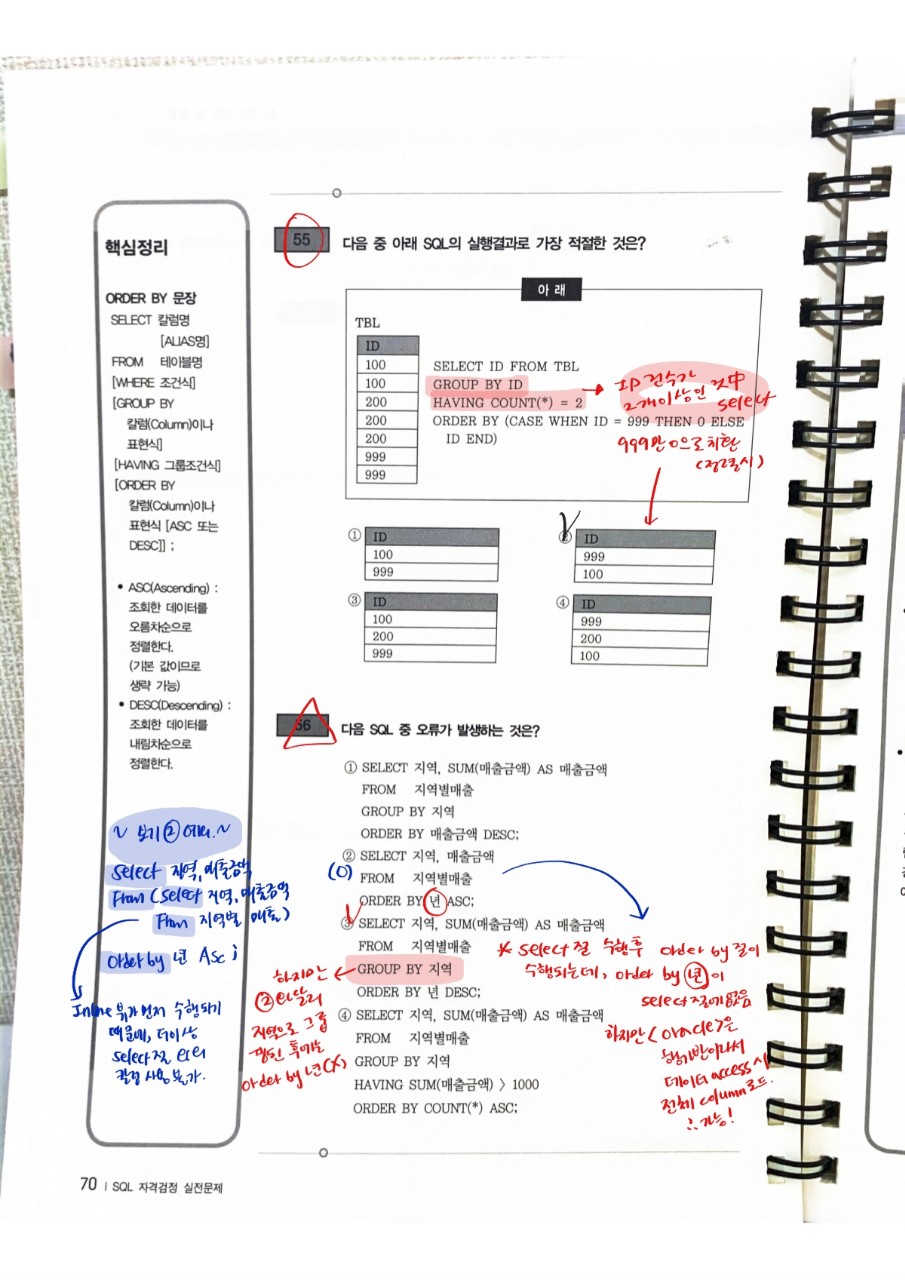 핵심정리
ORDER BY 문장
SELECT 칼럼명
[ALIAS명]
FROM 테이블명
[WHERE 조건식]
[GROUP BY
칼럼(Column)이나
표현식]
[HAVING 그룹조건식]
[ORDER BY
칼럼(Column)이나
표현식 [ASC 또는
DESC]] ;
• ASC(Ascending) :
조회한 데이터를
오름차순으로
정렬한다.
(기본 값이므로
생략 가능)
• DESC(Descending) :
조회한 데이터를
내림차순으로
정렬한다.
~ 보기 ② 에서. ~
select 지역, 매출금액
From (select 지역, 매출금액
From 지역별 매출)
order by 년 Asc ;
Inline 뷰가 먼저 수행되기
때문에, 더이상
select 절 외의
칼럼 사용 불가.
55 다음 중 아래 SQL의 실행결과로 가장 적절한 것은?
아래
TBL
ID
100
100
200
200
200
999
999
SELECT ID FROM TBL
GROUP BY ID
HAVING COUNT(*) = 2
ORDER BY (CASE WHEN ID = 999 THEN 0 ELSE
ID END)
ID 건수가
2개이상인 것中
select
999만 0으로 치환
(정렬시)
① ID
100
999
② ID
999
100
③ ID
100
200
999
④ ID
999
200
100
56 다음 SQL 중 오류가 발생하는 것은?
① SELECT 지역, SUM(매출금액) AS 매출금액
FROM 지역별매출
GROUP BY 지역
ORDER BY 매출금액 DESC;
② SELECT 지역, 매출금액
(O) FROM 지역별매출
ORDER BY 년 ASC;
③ SELECT 지역, SUM(매출금액) AS 매출금액
FROM 지역별매출
GROUP BY 지역
ORDER BY 년 DESC;
④ SELECT 지역, SUM(매출금액) AS 매출금액
FROM 지역별매출
GROUP BY 지역
HAVING SUM(매출금액) > 1000
ORDER BY COUNT(*) ASC;
하지만
②와 달리
지역으로 그룹
핑된 후에는
order by 년(X)
* select 절 수행 후 order by 절이
수행되는데, order by 년이
select 절에 없음
하지만 <oracle>은
행기반이라서
데이터 access 시
전체 column 로드.
∴ 가능!
70 | SQL 자격검정 실전문제